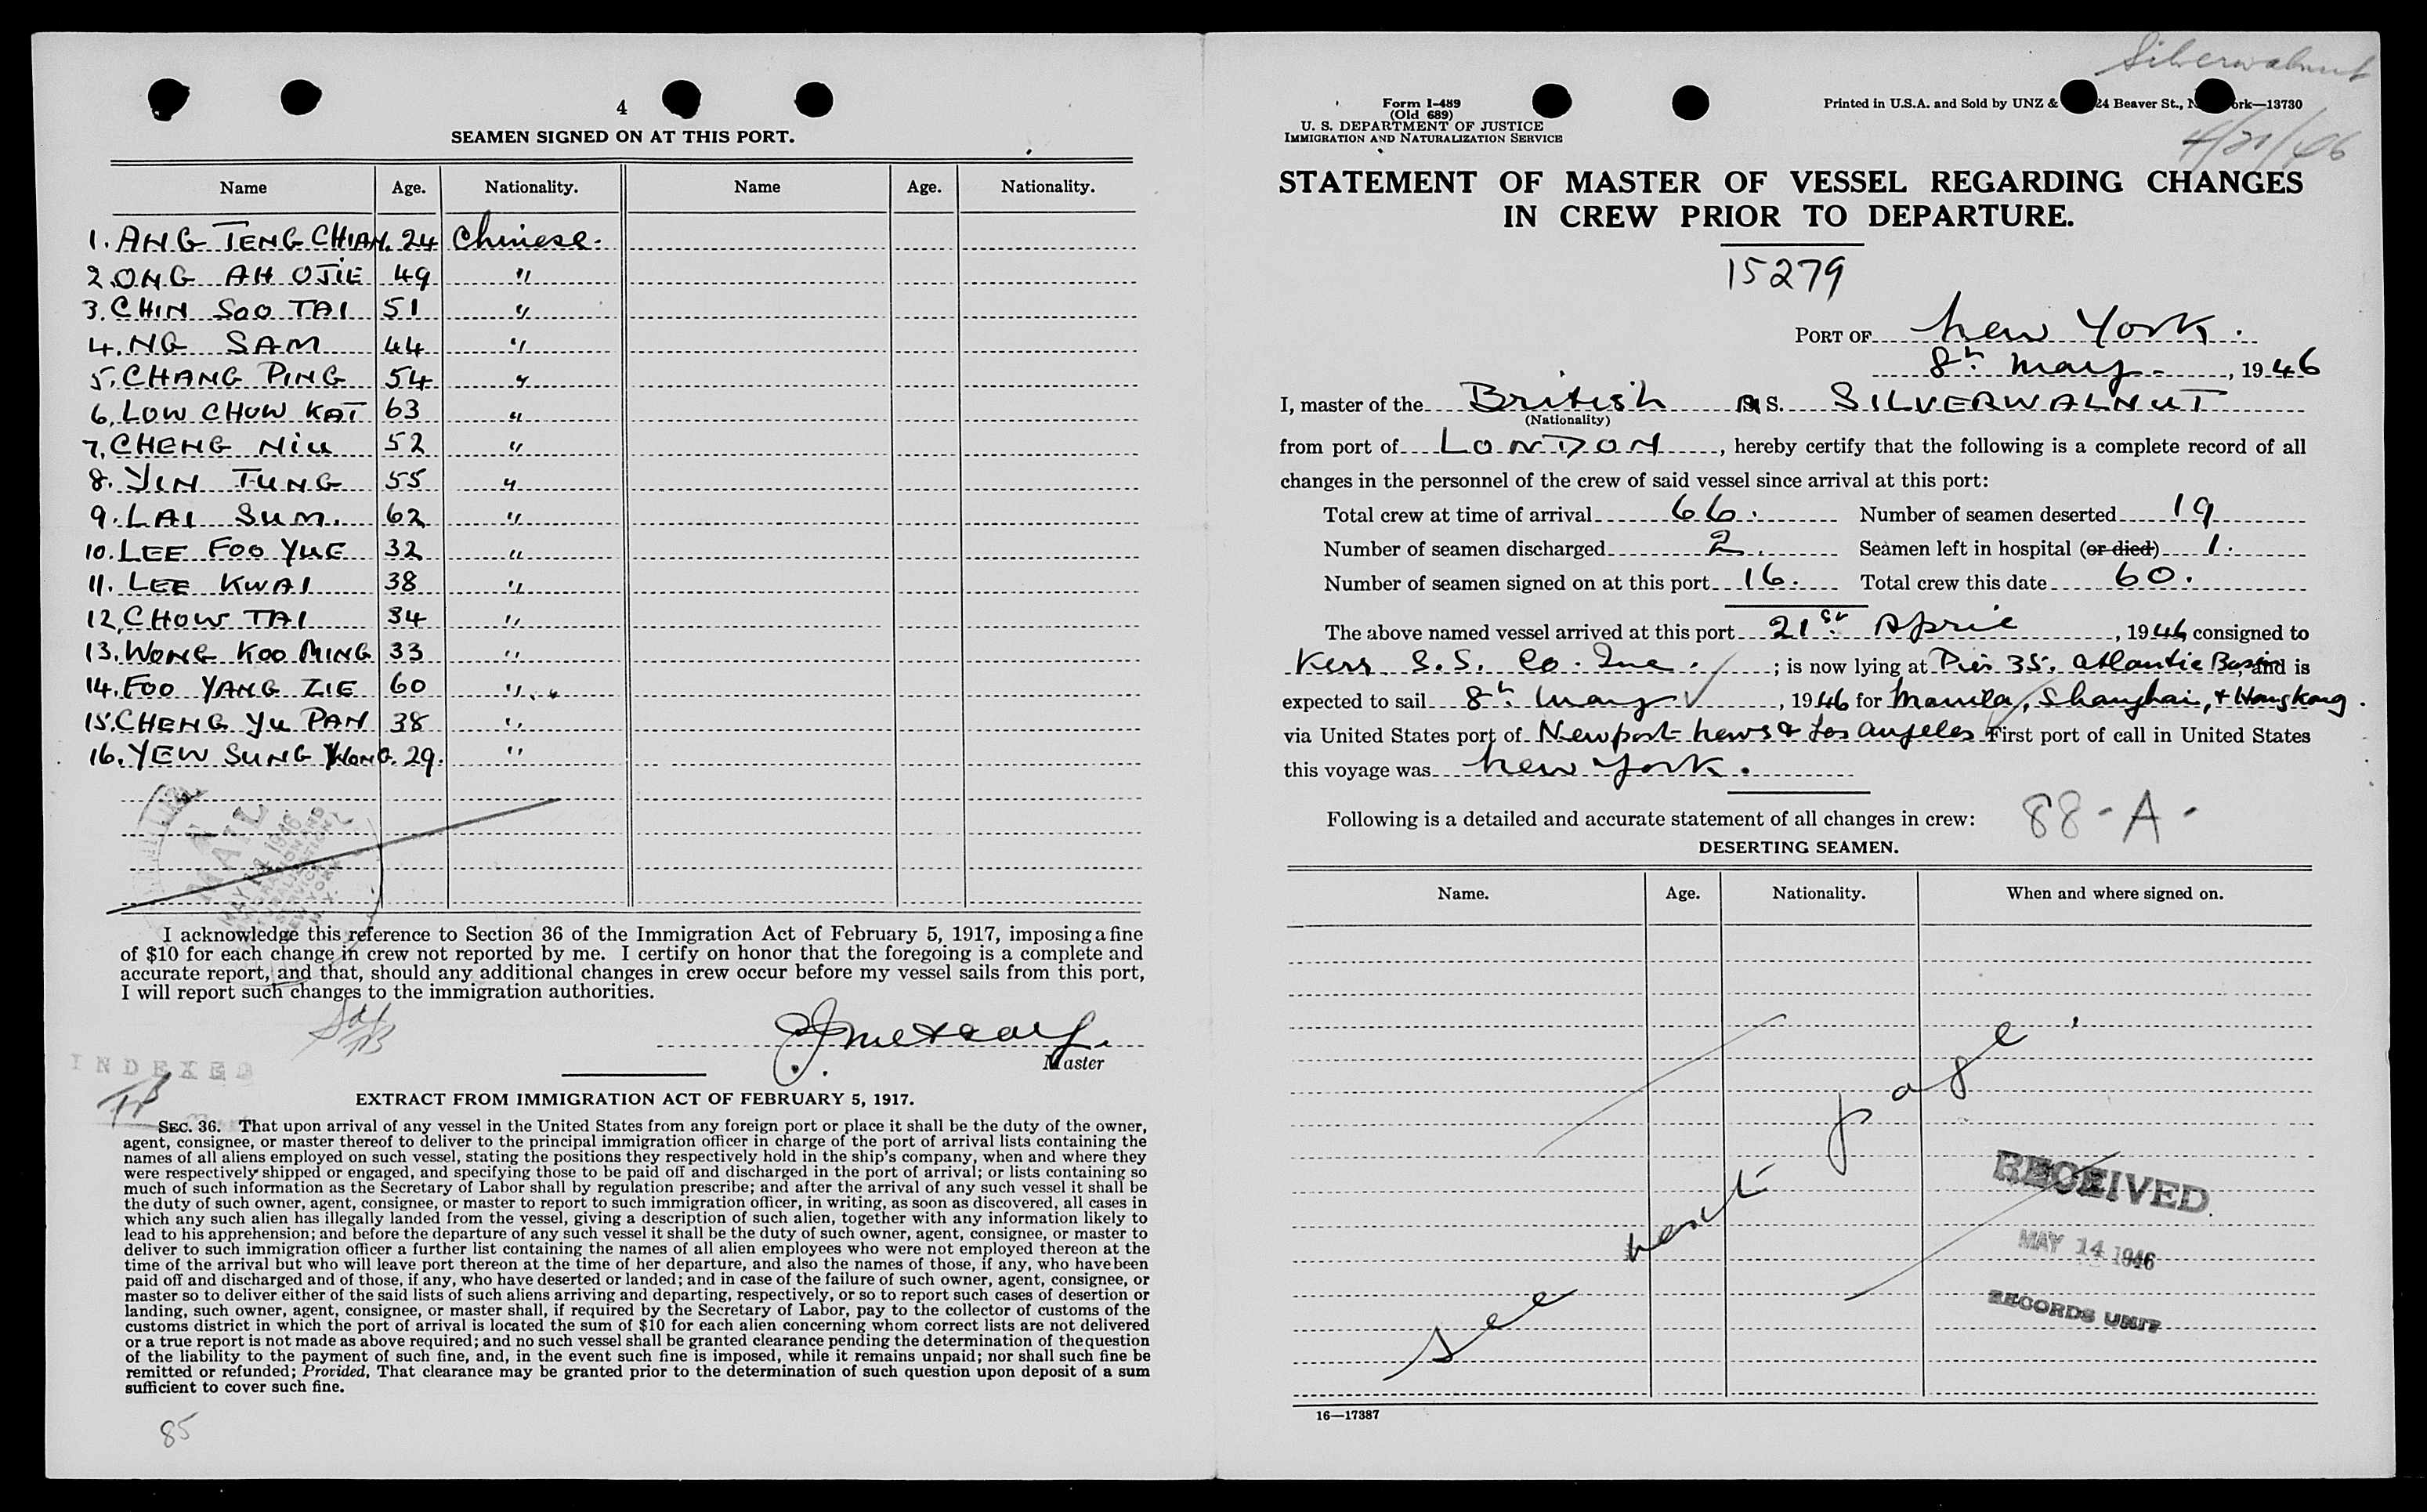 4
SEAMEN SIGNED ON AT THIS PORT.
Name Age. Nationality. Name Age. Nationality.
1. ANG TENG CHIAN. 24 Chinese.
2. ONG AH OJIE 49 "
3. CHIN SOO TAI 51 "
4. NG SAM 44 "
5. CHANG PING 54 "
6. LOW CHOW KAT 63 "
7. CHENG NIU 52 "
8. YIN TUNG 55 "
9. LAI SUM. 62 "
10. LEE FOO YUE 32 "
11. LEE KWAI 38 "
12. CHOW TAI 34 "
13. WONG KOO MING 33 "
14. FOO YANG ZIE 60 "
15. CHENG YU PAN 38 "
16. YEW SUNG WONG. 29. "
MAIL
MAY 14 1946
I acknowledge this reference to Section 36 of the Immigration Act of February 5, 1917, imposing a fine
of $10 for each change in crew not reported by me. I certify on honor that the foregoing is a complete and
accurate report, and that, should any additional changes in crew occur before my vessel sails from this port,
I will report such changes to the immigration authorities.
Master
INDEXED
EXTRACT FROM IMMIGRATION ACT OF FEBRUARY 5, 1917.
SEC. 36. That upon arrival of any vessel in the United States from any foreign port or place it shall be the duty of the owner,
agent, consignee, or master thereof to deliver to the principal immigration officer in charge of the port of arrival lists containing the
names of all aliens employed on such vessel, stating the positions they respectively hold in the ship's company, when and where they
were respectively shipped or engaged, and specifying those to be paid off and discharged in the port of arrival; or lists containing so
much of such information as the Secretary of Labor shall by regulation prescribe; and after the arrival of any such vessel it shall be
the duty of such owner, agent, consignee, or master to report to such immigration officer, in writing, as soon as discovered, all cases in
which any such alien has illegally landed from the vessel, giving a description of such alien, together with any information likely to
lead to his apprehension; and before the departure of any such vessel it shall be the duty of such owner, agent, consignee, or master to
deliver to such immigration officer a further list containing the names of all alien employees who were not employed thereon at the
time of the arrival but who will leave port thereon at the time of her departure, and also the names of those, if any, who have been
paid off and discharged and of those, if any, who have deserted or landed; and in case of the failure of such owner, agent, consignee, or
master so to deliver either of the said lists of such aliens arriving and departing, respectively, or so to report such cases of desertion or
landing, such owner, agent, consignee, or master shall, if required by the Secretary of Labor, pay to the collector of customs of the
customs district in which the port of arrival is located the sum of $10 for each alien concerning whom correct lists are not delivered
or a true report is not made as above required; and no such vessel shall be granted clearance pending the determination of the question
of the liability to the payment of such fine, and, in the event such fine is imposed, while it remains unpaid; nor shall such fine be
remitted or refunded; Provided, That clearance may be granted prior to the determination of such question upon deposit of a sum
sufficient to cover such fine.
85
Silverwalnut
4/21/46
Form I-489
(Old 689)
U. S. DEPARTMENT OF JUSTICE
IMMIGRATION AND NATURALIZATION SERVICE
Printed in U.S.A. and Sold by UNZ & 24 Beaver St., ork—13730
STATEMENT OF MASTER OF VESSEL REGARDING CHANGES
IN CREW PRIOR TO DEPARTURE.
15279
PORT OF New York.
8th May, 1946
I, master of the British M S. SILVERWALNUT
(Nationality)
from port of LONDON, hereby certify that the following is a complete record of all
changes in the personnel of the crew of said vessel since arrival at this port:
Total crew at time of arrival 66. Number of seamen deserted 19
Number of seamen discharged 2. Seamen left in hospital (or died) 1.
Number of seamen signed on at this port 16. Total crew this date 60.
The above named vessel arrived at this port 21st April, 1946 consigned to
Kerr S.S. Co. Inc.; is now lying at Pier 35, Atlantic Basin and is
expected to sail 8th May, 1946 for Manila, Shanghai, & Hong Kong.
via United States port of Newport News & Los Angeles First port of call in United States
this voyage was New York.
Following is a detailed and accurate statement of all changes in crew: 88-A-
DESERTING SEAMEN.
Name. Age. Nationality. When and where signed on.
see next page
RECEIVED
MAY 14 1946
RECORDS UNIT
16—17387